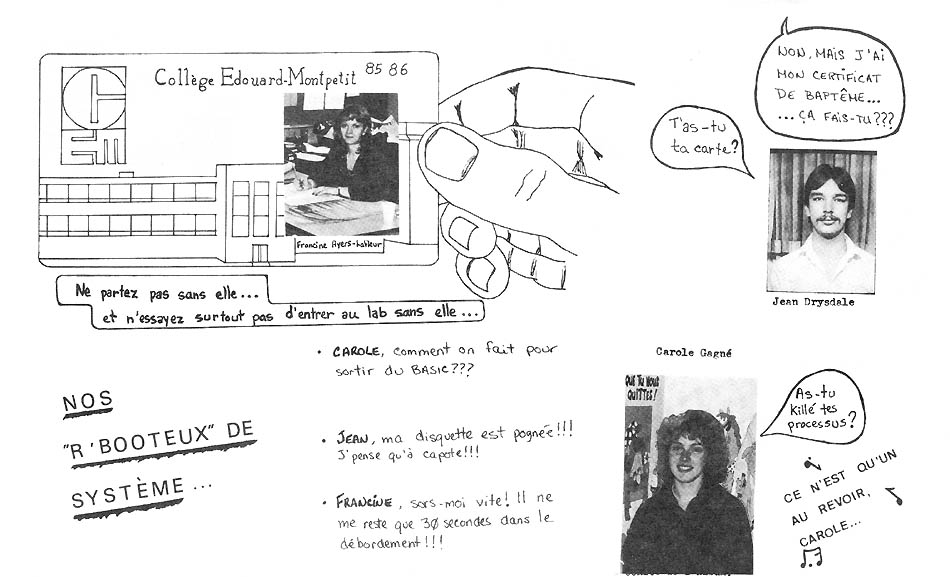 Collège Edouard-Montpetit 85 86
CEM
Francine Ayers-
Ne partez pas sans elle...
et n'essayez surtout pas d'entrer au lab sans elle...
NON, MAIS J'AI
MON CERTIFICAT
DE BAPTÊME...
...ÇA FAIS-TU???
T'as-tu
ta carte?
Jean Drysdale
NOS
"R'BOOTEUX" DE
SYSTÈME...
• CAROLE, comment on fait pour
sortir du BASIC???
• JEAN, ma disquette est pognée!!!
J'pense qu'à capote!!!
• FRANCINE, sors-moi vite! Il ne
me reste que 30 secondes dans le
débordement!!!
Carole Gagné
QUE TU NOUS
QUITTES!
As-tu
killé tes
processus?
CE N'EST QU'UN
AU REVOIR,
CAROLE...